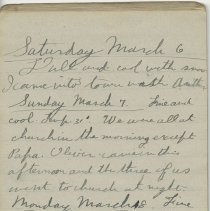 Saturday March 6
Dull and cold with snow
I came into town with
Sunday March 7. Fine and
cool. We were all at
church in the morning except
Papa. Oliver came in the
afternoon and the three of us
went to church at night.
Monday March 8. Fine